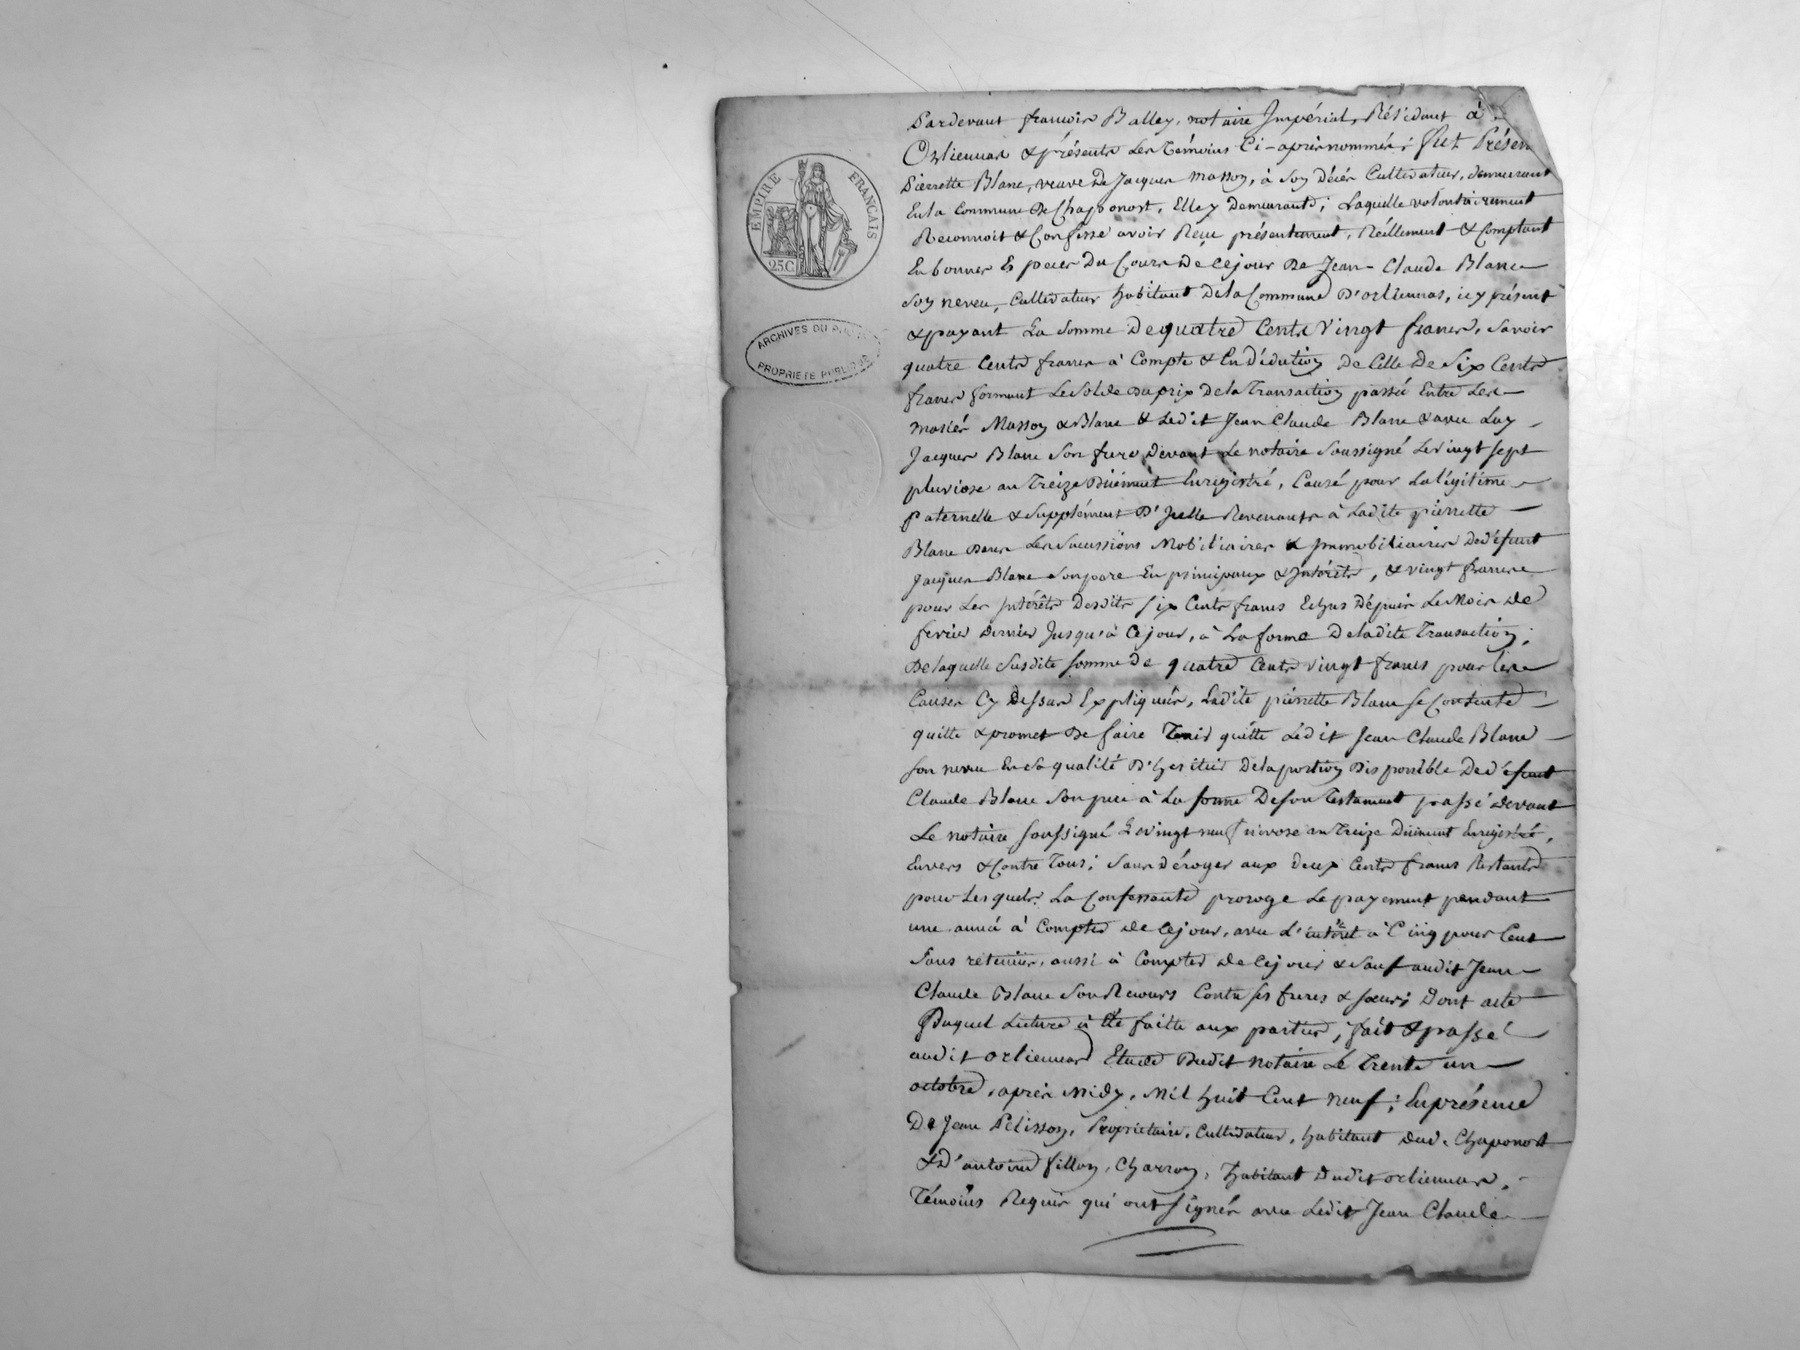 EMPIRE FRANÇAIS
25C
ARCHIVES DU
PROPRIETE PUBLIQUE
Pardevant francois Balley, notaire Impérial, Résidant à
Orliennas & présents Les Témoins Ci-après nommés; fut Présen
Pierrette Blanc, veuve De Jacques Masson, à Son Décès Cultivateur, demeurant
En la Commune De Chaponost, Elle y Demeurante; Laquelle volontairement
Reconnoit & Confesse avoir Reçu présentement, Réellement & Comptant
En bonnes Especes Du Cours De Cejour De Jean-Claude Blanc
Son neveu, Cultivateur habitant De la Commune D'orliennas, icy présent
& payant La Somme De quatre Cents Vingt francs, Savoir
quatre Cents francs à Compte & En Déduction De Celle De Six Cents
francs formant Le Solde Du prix De la Transaction passée Entre Les
mariés Masson & Blanc & Ledit Jean Claude Blanc & avec Luy
Jacques Blanc Son frere Devant Le notaire Soussigné Le vingt sept
pluviose an Treize Düement Enregistré, Causé pour La légitime
paternelle & Supplément D'Icelle Revenants à Ladite pierrette
Blanc Dans Les Sucussions Mobiliaires & Immobiliaires De défunt
Jacques Blanc Son pere En principaux & Intérêts, & vingt francs
pour Les Intérêts Desdits six Cents francs Echus Dépuis Le Mois De
fevrier Dernier Jusqu'à Cejour, à La forme De ladite Transaction;
De laquelle Susdite Somme De quatre Cents vingt francs pour Les
Causes Cy Dessus Expliquées, Ladite pierrette Blanc se Contente
quitte & promet De faire Tenir quitte Lédit Jean Claude Blanc
son neveu En Sa qualité D'héritier De la portion Disponible De défunt
Claude Blanc Son pere à La forme De son Testament passé devant
Le notaire soussigné Le vingt neuf nivose an Treize Düement Enregistré,
Envers & Contre Tous; Sans Déroger aux deux Cents francs Restants
pour Lesquels La Confessante proroge Le payement pendant
une année à Compter de Cejour, avec L'intérêt à Cinq pour Cent
Sans retenüe, aussi à Compter de Cejour & Sauf audit Jean
Claude Blanc Son Recours Contre ses freres & soeurs; Dont acte
Duquel Lecture à été faitte aux parties, fait & passé
audit orliennas Etude Dudit notaire Le Trente un
octobre, après Midy, Mil huit Cent neuf; En présence
De Jean Pelisson, Propriétaire, Cultivateur, habitant dud. Chaponost
& D'antoine fillon, Charron, habitant Dudit orliennas,
Témoins Requis qui ont signés avec Ledit Jean Claude